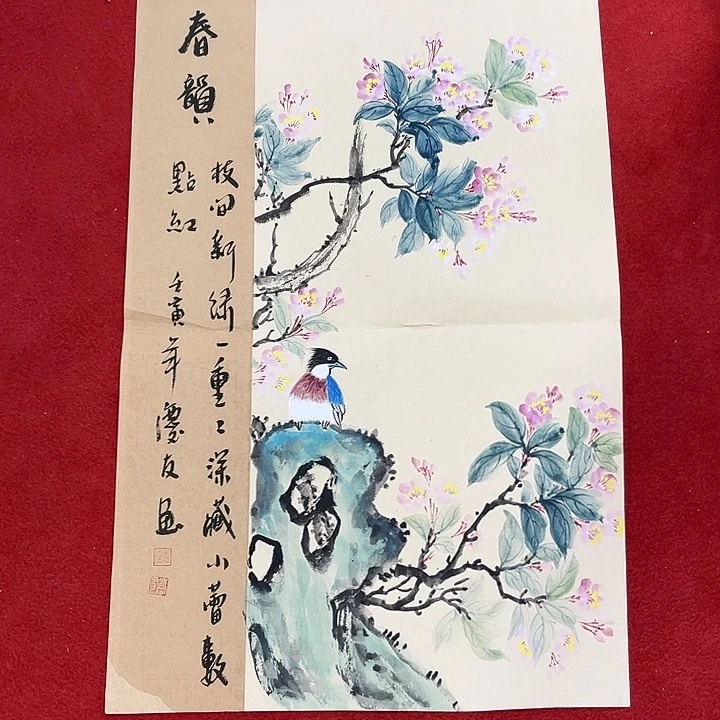 春韻
枝间新绿一重重深藏小蕾數
點紅 壬寅年慶友画